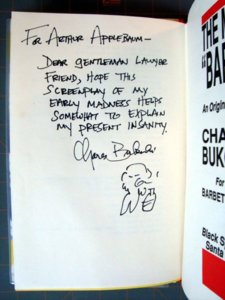 FOR ARTHUR APPLEBAUM—
DEAR GENTLEMAN LAWYER
FRIEND, HOPE THIS
SCREENPLAY OF MY
EARLY MADNESS HELPS
SOMEWHAT TO EXPLAIN
MY PRESENT INSANITY.
THE M
"BAR
An Origin
CHA
BUK
For
BARBET
Black S
Santa